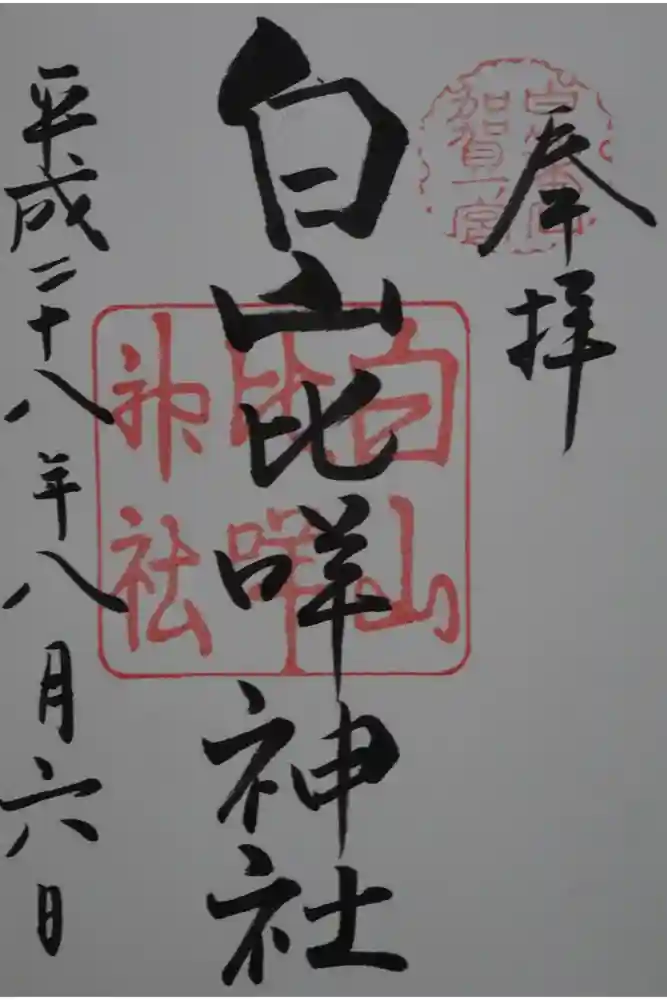 奉拝
加賀一宮
白山比咩神社
白山比咩神社
平成二十八年八月六日